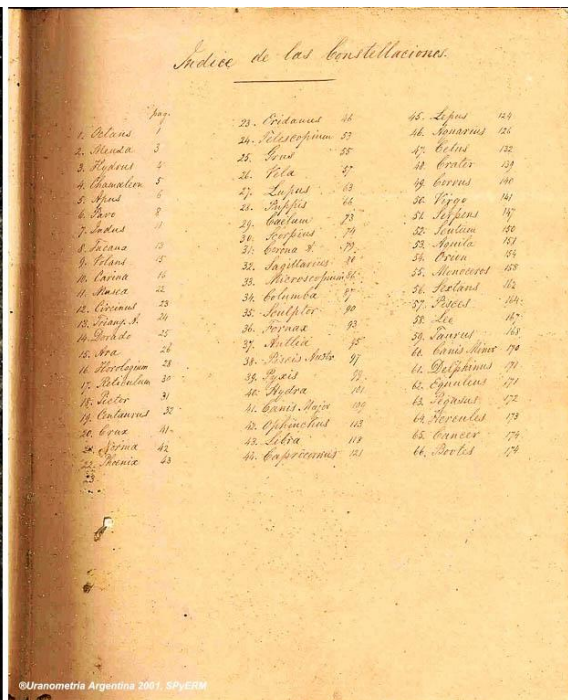 Indice de las Constellaciones.
pag.
1. Octans 1
2. Mensa 3
3. Hydrus 4
4. Chamaeleon 5
5. Apus 6
6. Pavo 8
7. Indus 11
8. Tucana 13
9. Volans 15
10. Carina 16
11. Musca 22
12. Circinus 23
13. Triang. A. 24
14. Dorado 25
15. Ara 26
16. Horologium 28
17. Reticulum 30
18. Pictor 31
19. Centaurus 32
20. Crux 41
21. Norma 42
22. Phoenix 43
23
23. Eridanus 46
24. Telescopium 53
25. Grus 55
26. Vela 57
27. Lupus 63
28. Puppis 66
29. Caelum 73
30. Scorpius 74
31. Corona A. 79
32. Sagittarius
33. Microscopium 86
34. Columba 87
35. Sculptor 90
36. Fornax 93
37. Antlia 95
38. Piscis Austr 97
39. Pyxis 99
40. Hydra 101
41. Canis Major 109
42. Ophiuchus 113
43. Libra 118
44. Capricornus 121
45. Lepus 124
46. Aquarius 126
47. Cetus 132
48. Crater 139
49. Corvus 140
50. Virgo 141
51. Serpens 147
52. Scutum 150
53. Aquila 151
54. Orion 154
55. Monoceros 158
56. Sextans 162
57. Pisces 164
58. Leo 167
59. Taurus 168
60. Canis Minor 170
61. Delphinus 171
62. Equuleus 171
63. Pegasus 172
64. Hercules 173
65. Cancer 174
66. Bootes 174
®Uranometría Argentina 2001. SPyERM